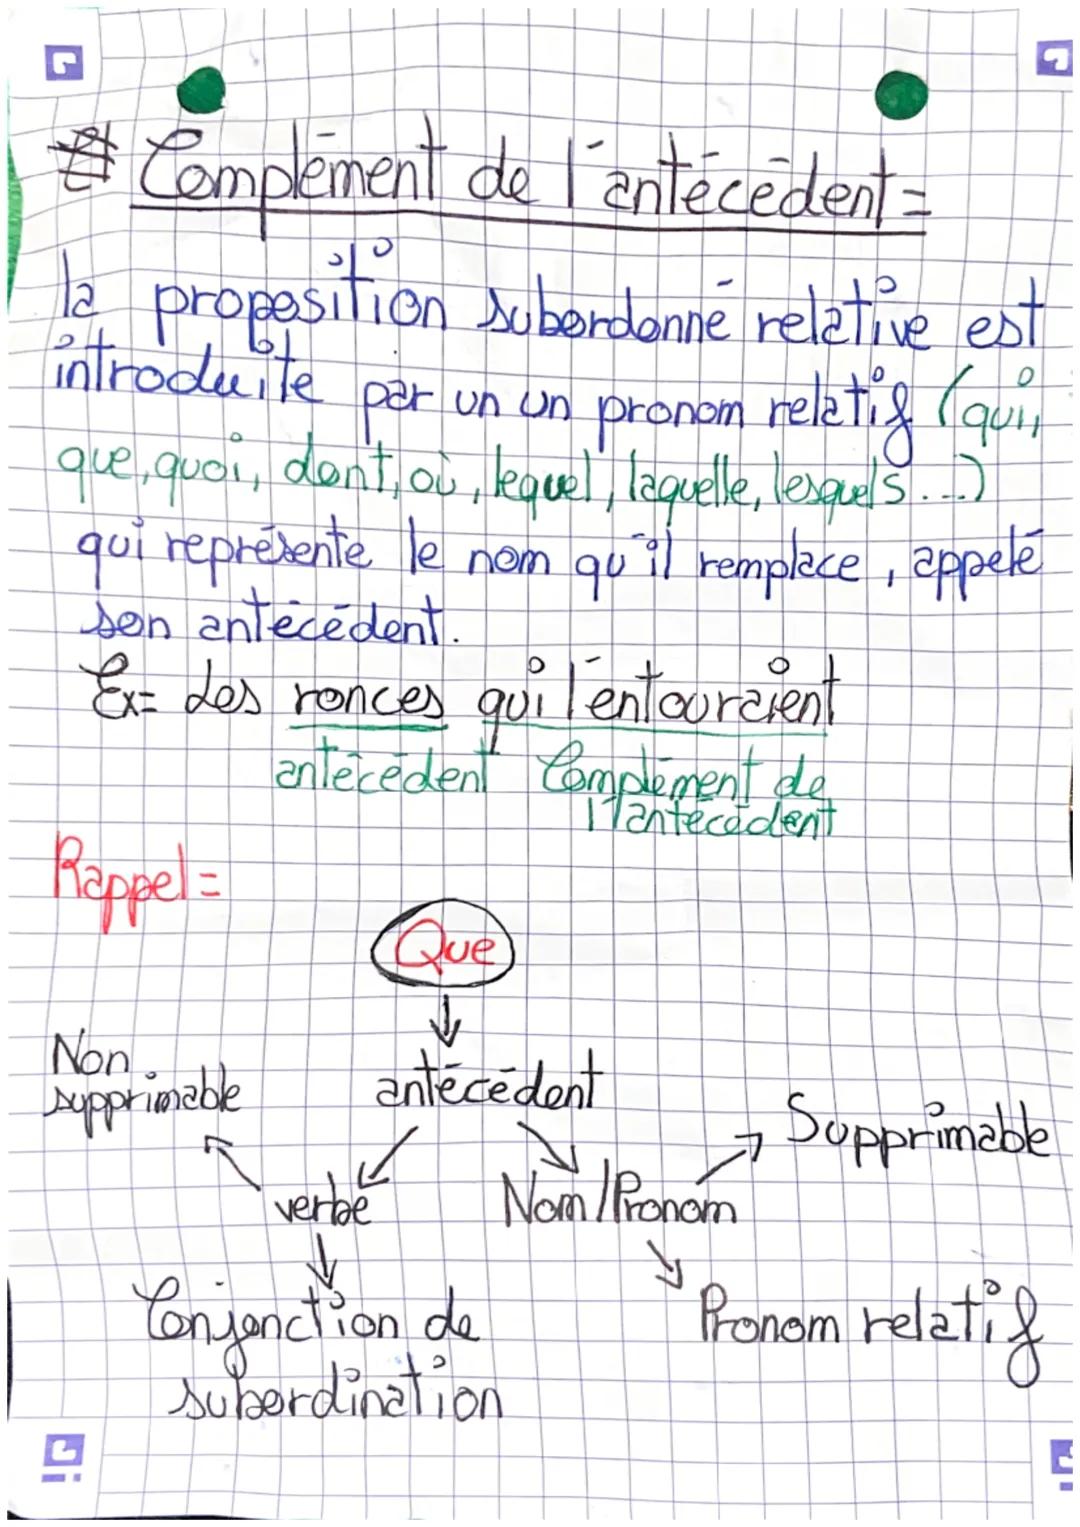 Complément de l'antécédent=
la proposition subordonné relative est
introduite par un un pronom relatif (qui,
que, quoi, dont, où, lequel, laquelle, lesquels...)
qui représente le nom qu'il remplace, appelé
son antécédent.
Ex= des ronces qui l'entouraient
antécédent Complément de
l'antécédent
Rappel=
Que
Non
supprimable
antécédent
Supprimable
verbe
Nom/Pronom
Conjonction de
subordination
Pronom relatif